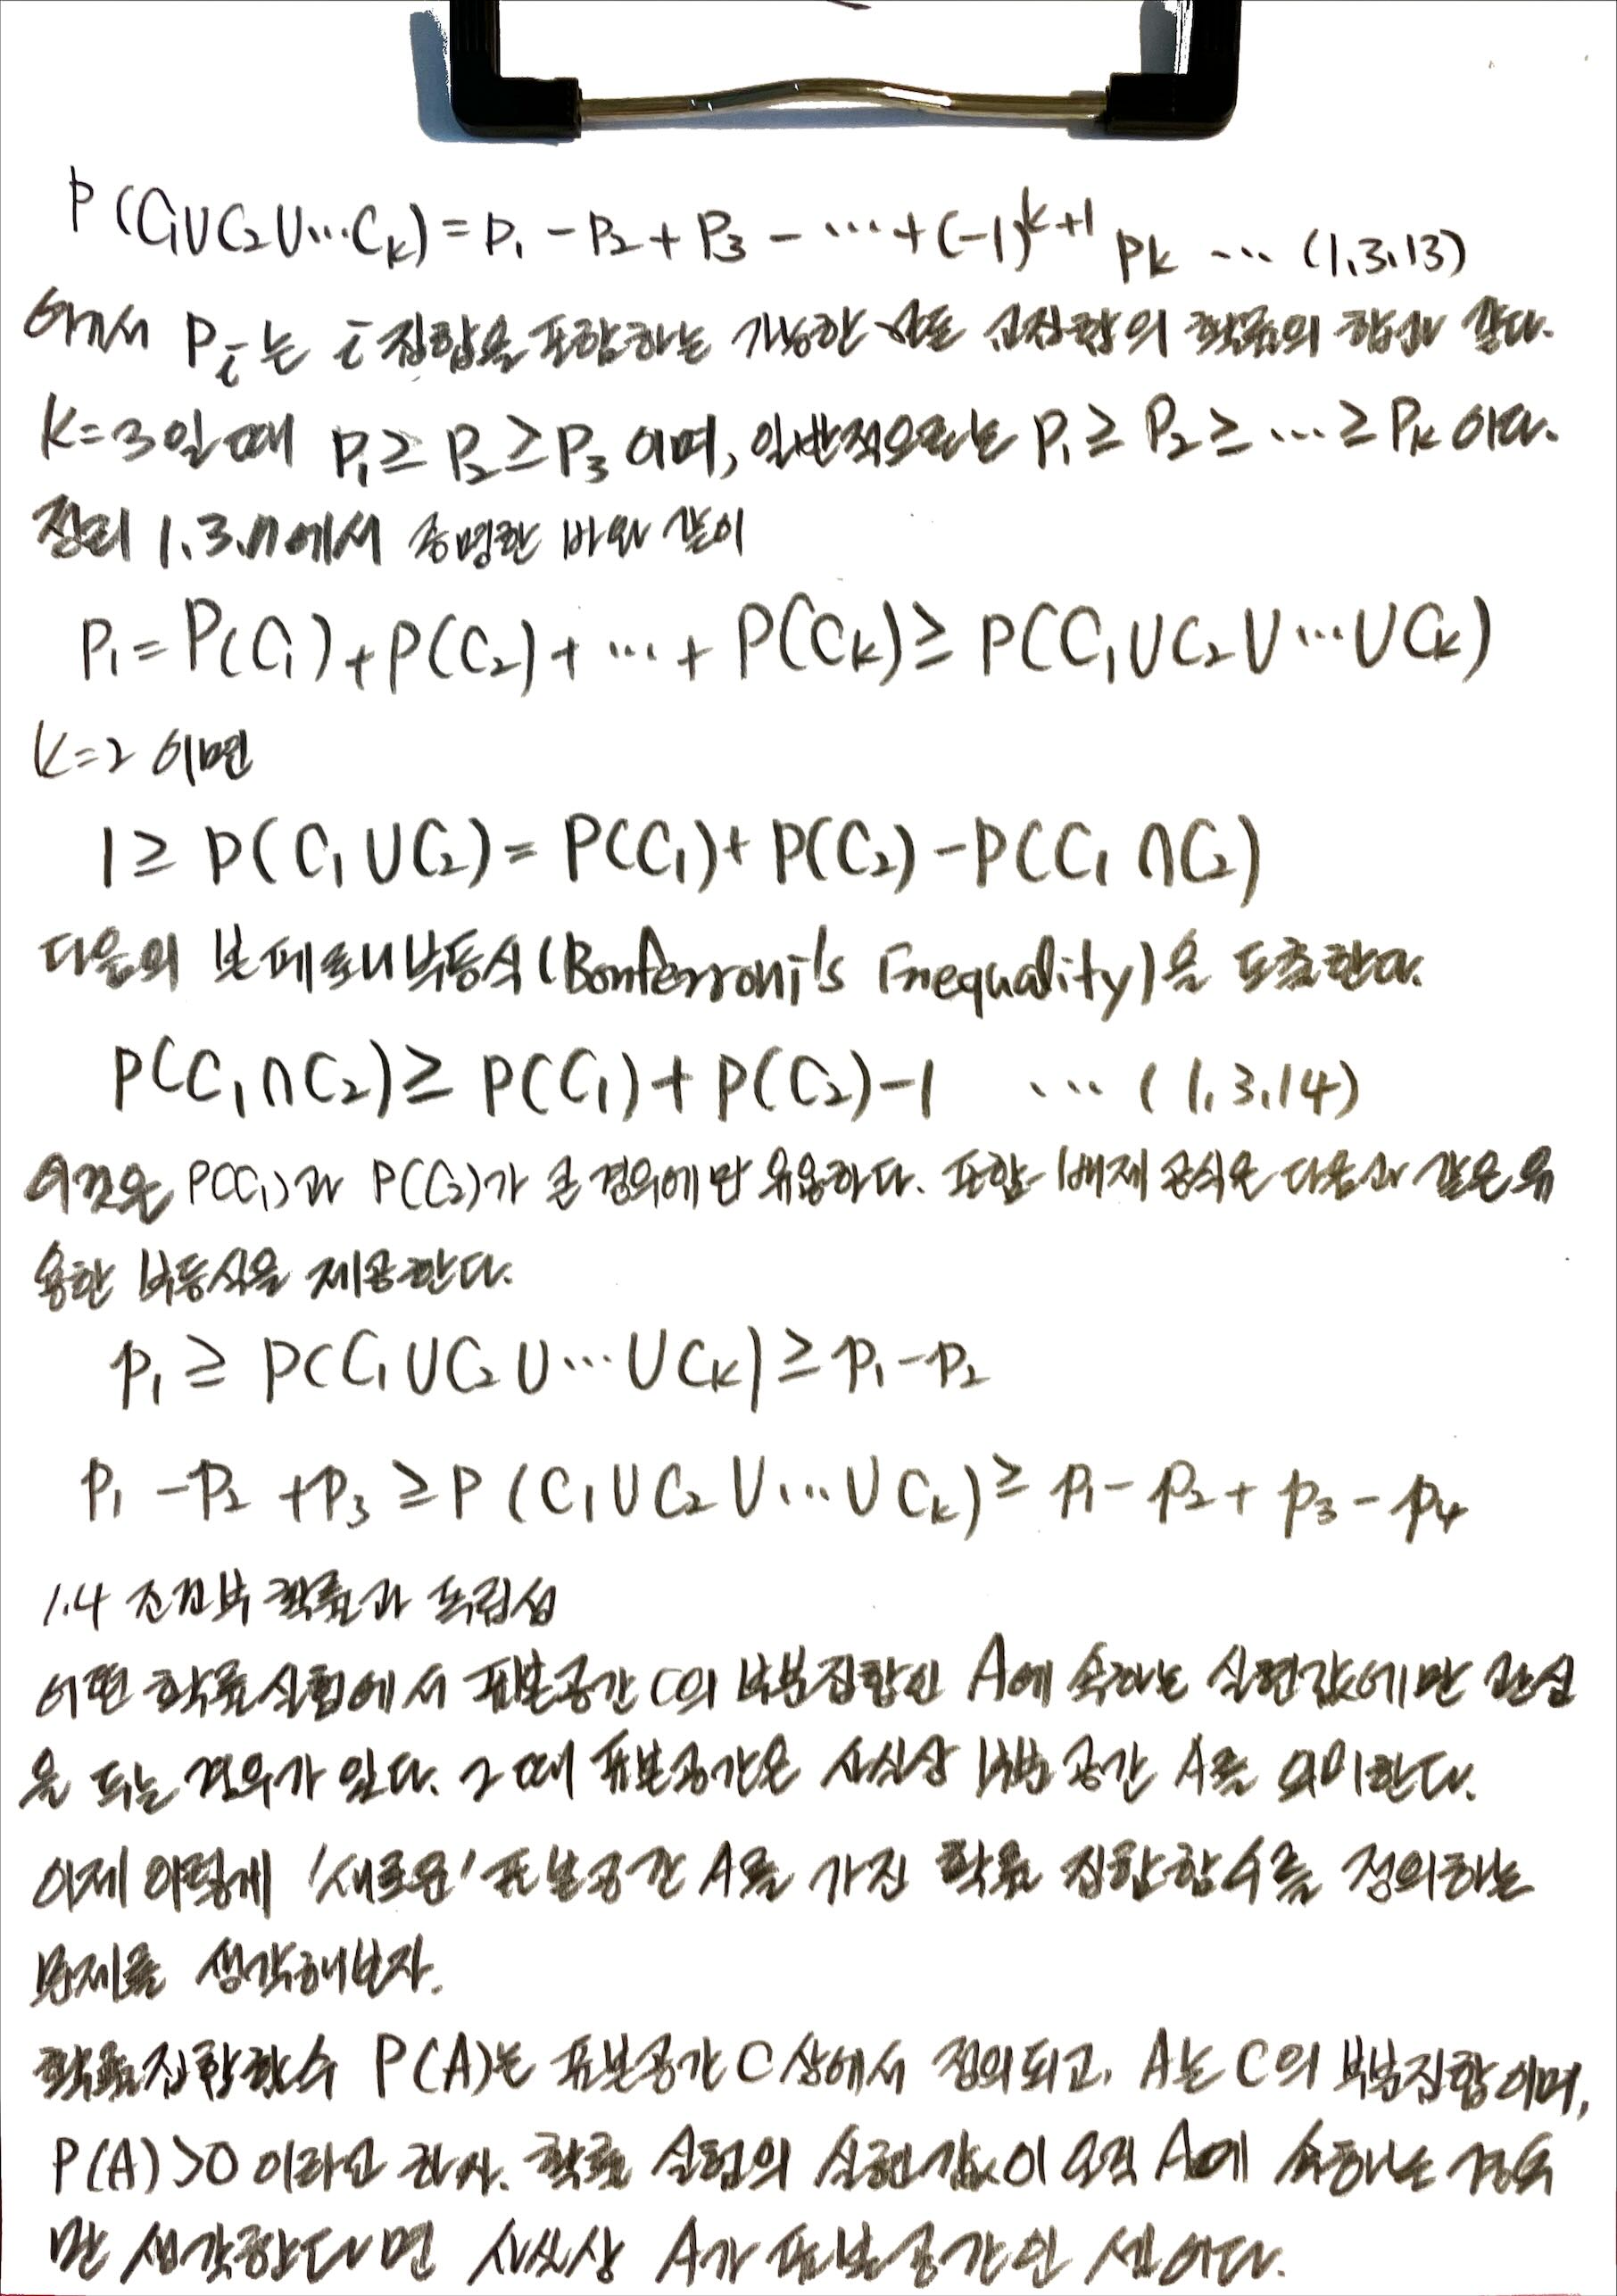 P(C₁∪C₂∪…C_k) = p₁ - p₂ + p₃ - … + (-1)^{k+1} p_k … (1.3.13)
여기서 P_i는 i 집합을 포함하는 가능한 모든 교집합의 확률의 합과 같다.
k=3일 때 p₁ ≥ p₂ ≥ p₃ 이며, 일반적으로는 p₁ ≥ p₂ ≥ … ≥ p_k 이다.
정리 1.3.7에서 증명한 바와 같이
p₁ = P(C₁) + P(C₂) + … + P(C_k) ≥ P(C₁∪C₂∪…∪C_k)
k=2 이면
1 ≥ P(C₁∪C₂) = P(C₁) + P(C₂) - P(C₁∩C₂)
다음의 본페로니부등식(Bonferroni's Inequality)을 도출한다.
P(C₁∩C₂) ≥ P(C₁) + P(C₂) - 1 … (1.3.14)
이것은 P(C₁)과 P(C₂)가 큰 경우에만 유용하다. 포함-배제 공식은 다음과 같은 유
용한 부등식을 제공한다.
p₁ ≥ P(C₁∪C₂∪…∪C_k) ≥ p₁ - p₂
p₁ - p₂ + p₃ ≥ P(C₁∪C₂∪…∪C_k) ≥ p₁ - p₂ + p₃ - p₄
1.4 조건부 확률과 독립성
어떤 확률실험에서 표본공간 C의 부분집합인 A에 속하는 실현값에만 관심
을 두는 경우가 있다. 그 때 표본공간은 사실상 부분 공간 A를 의미한다.
이제 어떻게 '새로운' 표본공간 A를 가진 확률 집합함수를 정의하는
문제를 생각해보자.
확률집합함수 P(A)는 표본공간 C 상에서 정의되고, A는 C의 부분집합이며,
P(A)>0 이라고 하자. 확률 실험의 실현값이 오직 A에 속하는 경우
만 생각한다면 사실상 A가 표본공간인 셈이다.